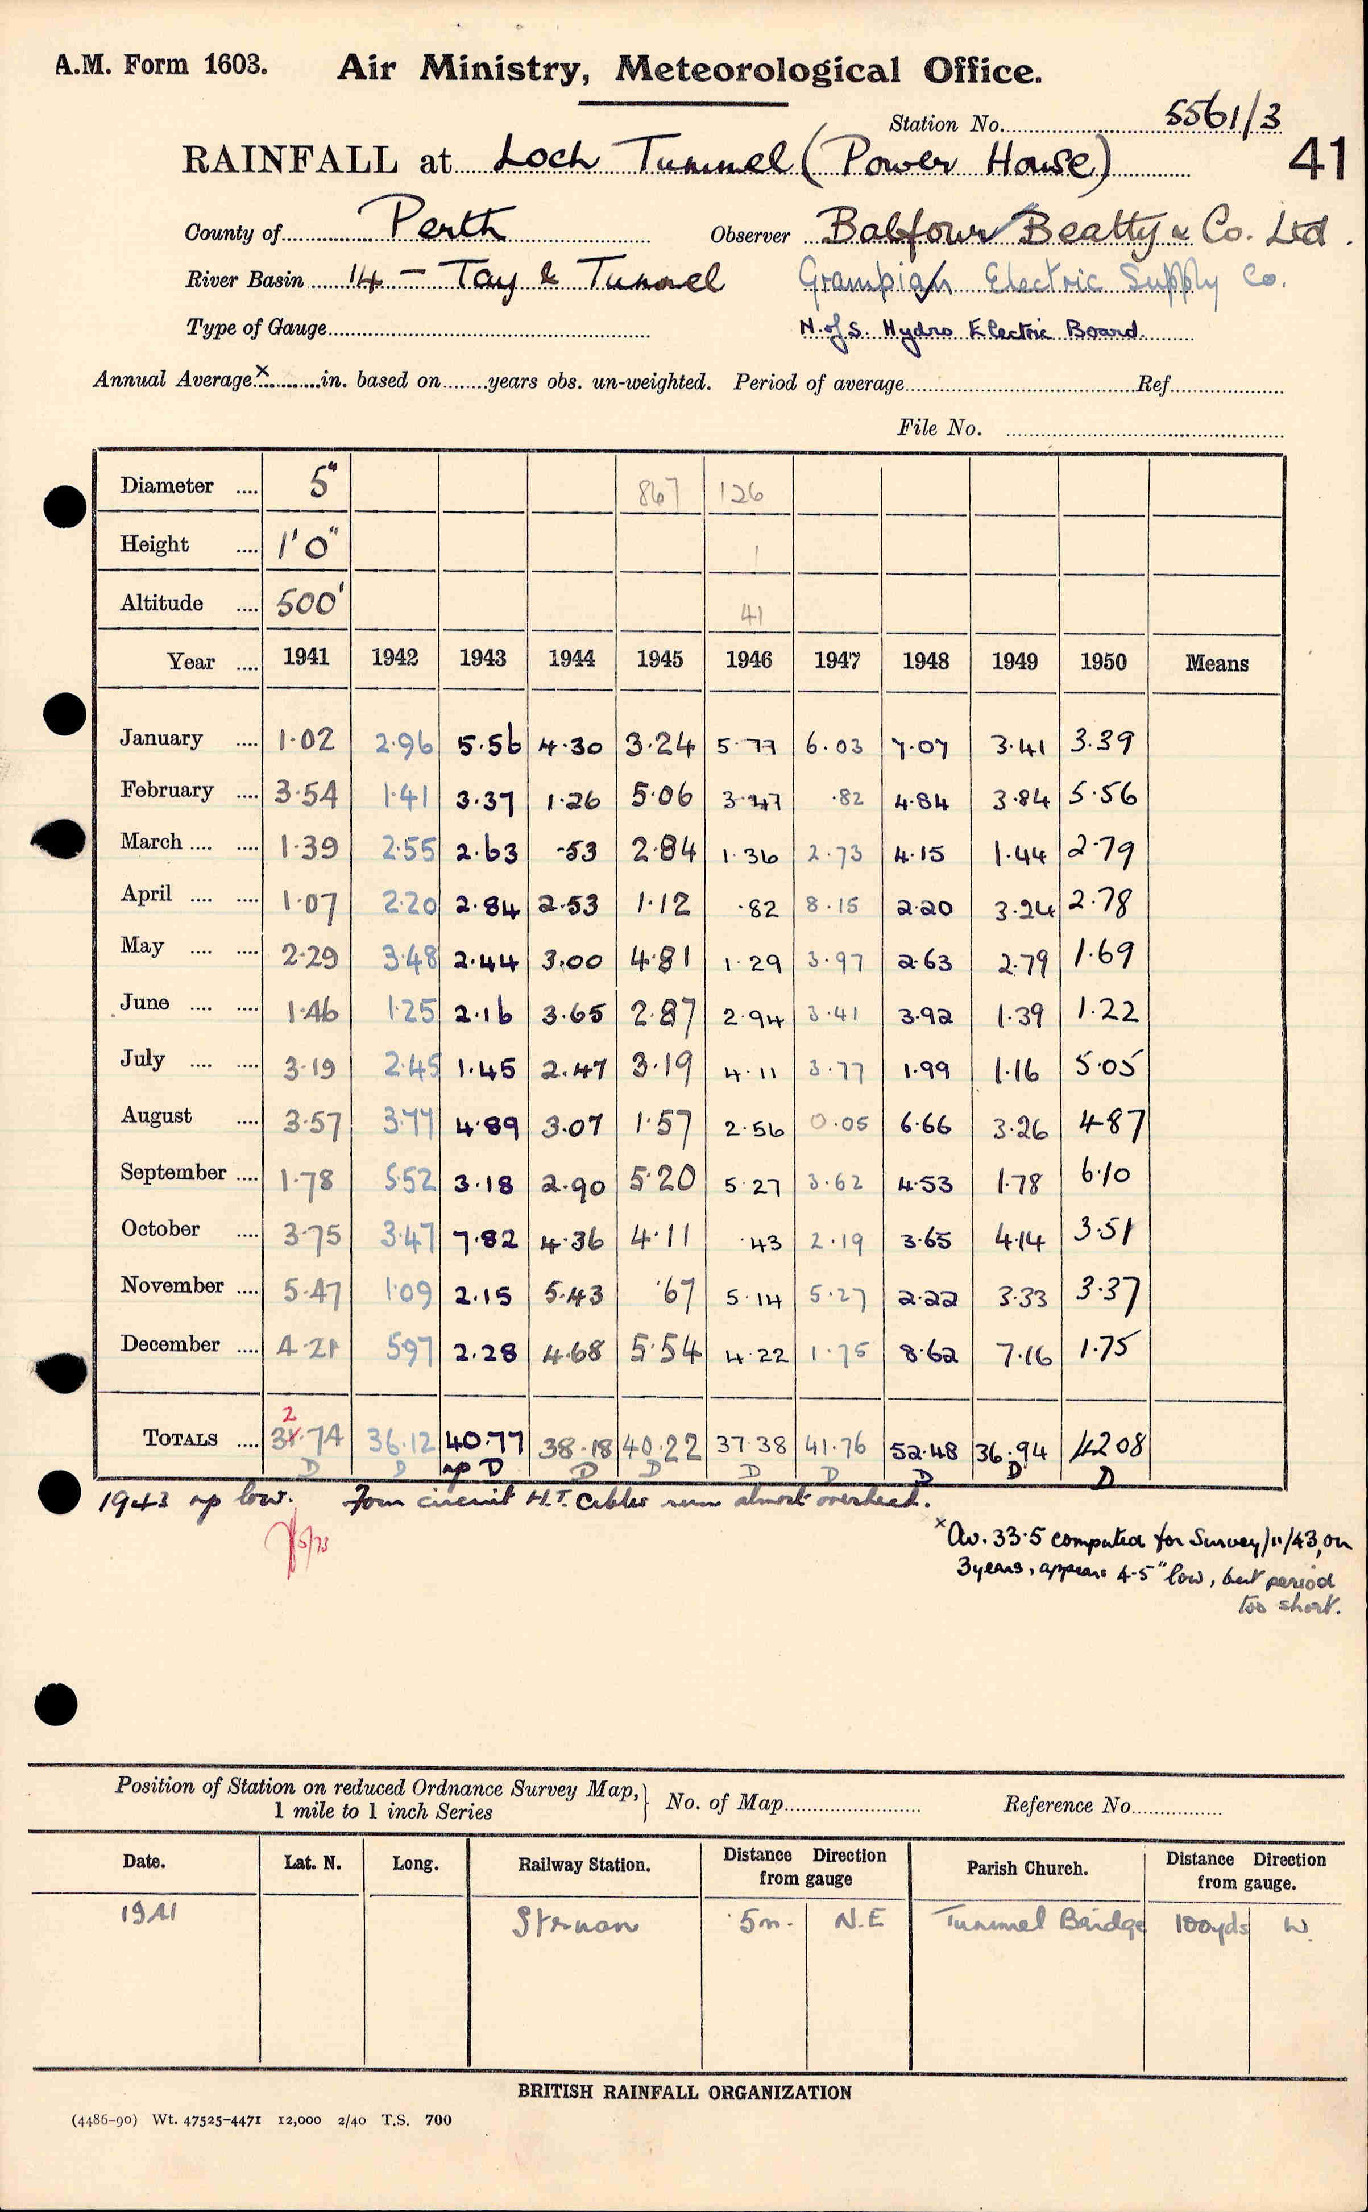 A.M. Form 1603. Air Ministry, Meteorological Office.
Station No. 5561/3
RAINFALL at Loch Tummel (Power House) 41
County of Perth Observer Balfour Beatty & Co. Ltd.
River Basin 14 – Tay & Tummel Grampian Electric Supply Co.
Type of Gauge N. of S. Hydro Electric Board
Annual Average x in. based on years obs. un-weighted. Period of average Ref.
File No.
Diameter 5" 867 126
Height 1'0" 1
Altitude 500' 41
Year 1941 1942 1943 1944 1945 1946 1947 1948 1949 1950 Means
January 1.02 2.96 5.56 4.30 3.24 5.77 6.03 7.07 3.41 3.39
February 3.54 1.41 3.37 1.26 5.06 3.47 .82 4.84 3.84 5.56
March 1.39 2.55 2.63 .53 2.84 1.36 2.73 4.15 1.44 2.79
April 1.07 2.20 2.84 2.53 1.12 .82 8.15 2.20 3.24 2.78
May 2.29 3.48 2.44 3.00 4.81 1.29 3.97 2.63 2.79 1.69
June 1.46 1.25 2.16 3.65 2.87 2.94 3.41 3.92 1.39 1.22
July 3.19 2.45 1.45 2.47 3.19 4.11 3.77 1.99 1.16 5.05
August 3.57 3.77 4.89 3.07 1.57 2.56 0.05 6.66 3.26 4.87
September 1.78 5.52 3.18 2.90 5.20 5.27 3.62 4.53 1.78 6.10
October 3.75 3.47 7.82 4.36 4.11 .43 2.19 3.65 4.14 3.51
November 5.47 1.09 2.15 5.43 .67 5.14 5.27 2.22 3.33 3.37
December 4.21 5.97 2.28 4.68 5.54 4.22 1.75 8.62 7.16 1.75
2
TOTALS 31.74 36.12 40.77 38.18 40.22 37.38 41.76 52.48 36.94 42.08
D D np D D D D D D D D
1943 np low. Four circuit H.T. Cables run almost overhead.
x Av. 33.5 computed for Survey/11/43, on
3 years, appears 4-5" low, but period
too short.
Position of Station on reduced Ordnance Survey Map, 1 mile to 1 inch Series No. of Map Reference No.
Date. Lat. N. Long. Railway Station. Distance Direction from gauge Parish Church. Distance Direction from gauge.
1941 Struan 5m. N.E Tummel Bridge 100yds W.
BRITISH RAINFALL ORGANIZATION
(4486-90) Wt. 47525-4471 12,000 2/40 T.S. 700